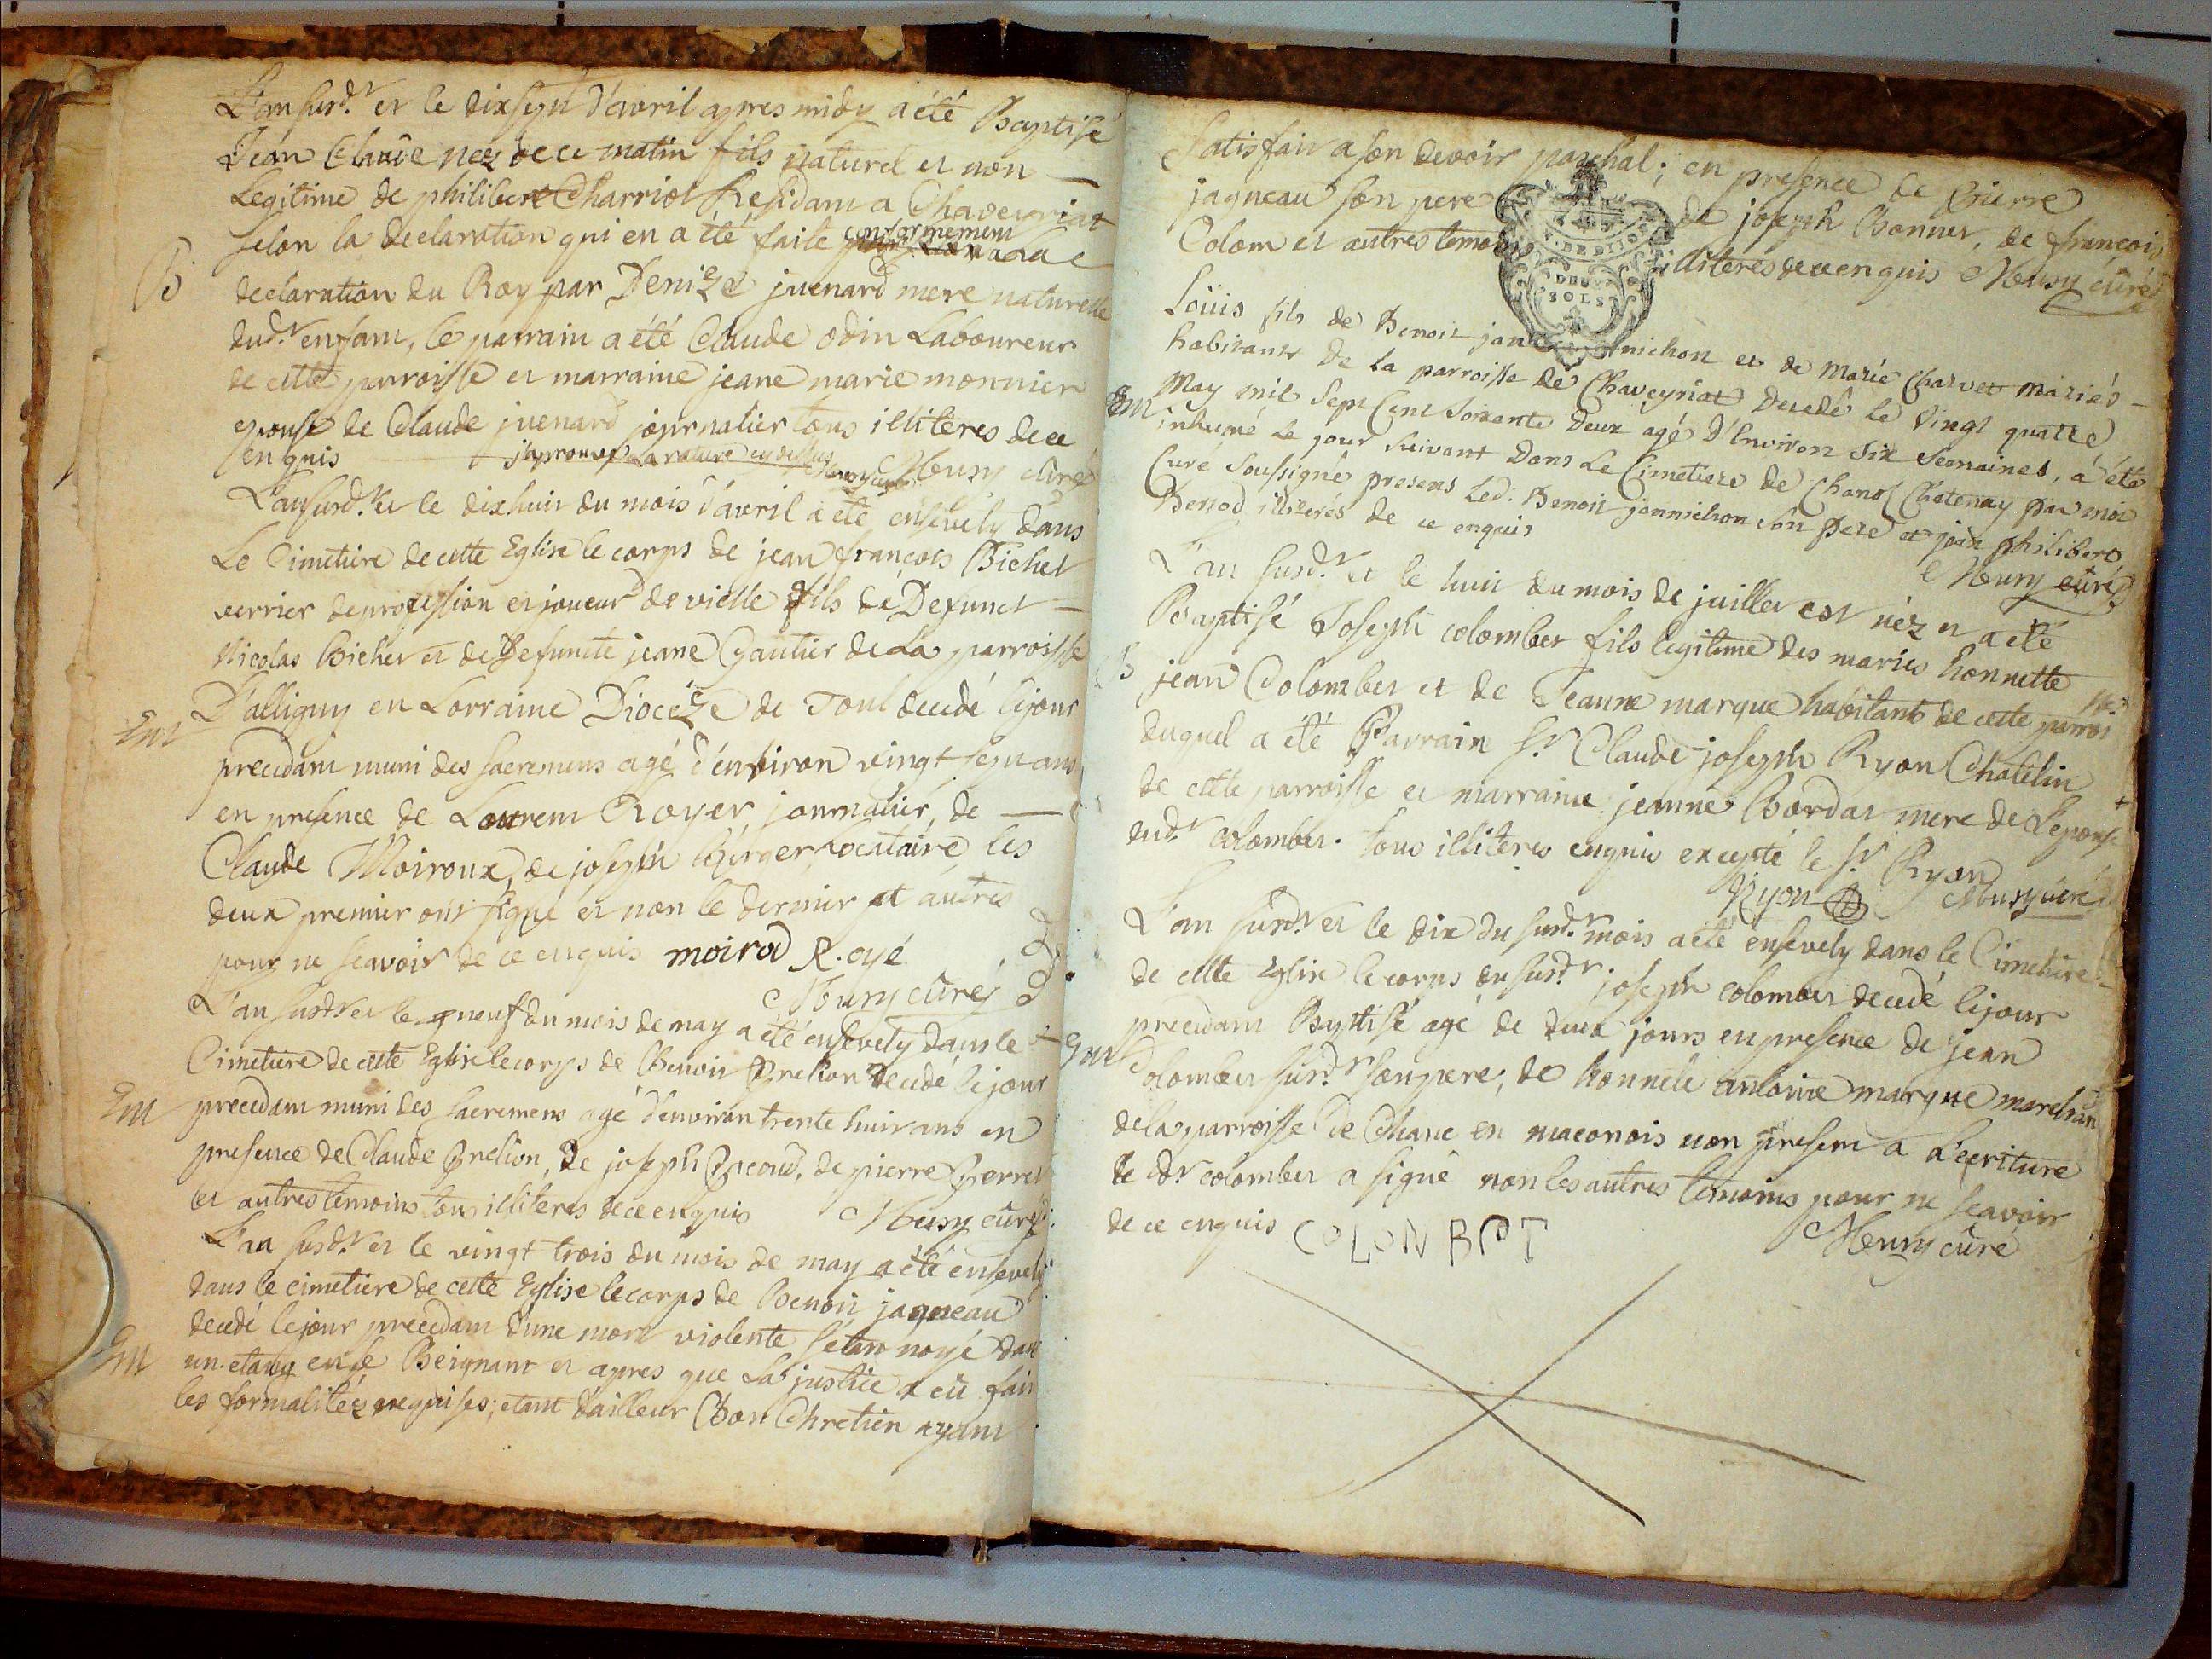 L'an susd.t et le dix sept d'avril apres midy a été Baptisé
Jean Claude nez de ce matin fils naturel et non
Legitime de philibert Charriot Residant a Chaveyriat
selon la declaration qui en a été faite conformement a La
B
declaration du Roy par Denize juenard mere naturelle
dud.t enfant, le parrain a été Claude odin Laboureur
de cette parroisse et marraine jeane marie monnier
epouse de Claude juenard journalier tous illiteres de ce
enquis j'approuve La rature cy dessus Meury curé
L'an susd.t et le dix huit du mois d'avril a été ensevely dans
Le Cimetiere de cette Eglise le corps de jean françois Bichet
verrier de profession et joueur de vielle fils de Defunct
Nicolas Bichet et de Defuncte jeane Gautier de La parroisse
D'alligny en Lorraine Diocéze de Toul decedé le jour
Em
precedant muni des sacremens agé d'environ vingt sept ans
en presence de Laurent Royer journalier, de
Claude Moiroux, de joseph Berger Locataire les
deux premier ont signé et non le dernier et autres
pour ne scavoir de ce enquis moirod R.oyé
Meury curé
L'an susd.t et le neuf du mois de may a été ensevely dans le
Cimetiere de cette Eglise le corps de Benoit Prelion decedé le jour
Em
precedant muni des sacremens agé d'environ trente huit ans en
presence de Claude Prelion, de joseph, de pierre Perret
et autres temoins tous illiteres de ce enquis Meury curé
L'an susd.t et le vingt trois du mois de may a été ensevely
dans le cimetiere de cette Eglise le corps de Benoit jagneau
decedé le jour precedant d'une mort violente s'etant noyé dans
Em
un etang en se Beignant et apres que La justice a eü fait
les formalitéz requises; etant dailleur Bon Chretien ayant
satisfait a son devoir paschal; en presence de Pierre
jagneau son pere de joseph Bonnet, de françois
Colom et autres temoins illiteres de ce enquis Meury curé
DE DIJON
DEUX
SOLS
Loüis fils de Benoit janmichon et de Marie Charvet mariés
habitants de la parroisse de Chaveyriat decedé le vingt quatre
Em
May mil sept Cent soixante deux agé d'Environ six semaines, a été
inhumé le jour suivant dans Le Cimetiere de Chanoz Chatenay par moi
Curé soussigné presens led. Benoit janmichon son pere et jean philibert
Benod illiterés de ce enquis
Meury curé
L'an susd.t et le huit du mois de juillet est néz et a été
Baptisé Joseph colombet fils legitime des maries honnette
B
jean Colombet et de Jeanne marque habitants de cette parroi
duquel a été Parrain S.r Claude joseph Ryon Chatelin
de cette parroisse et marraine jeanne Bordat mere de L'epouse
dud.t colombet. tous illiteres enquis excepté le S.r Ryon
Ryon Meury curé
L'an susd.t et le dix du susd.t mois a été ensevely dans le Cimetiere
de cette Eglise le corps du susd.t joseph colombet decedé le jour
precedant Baptisé agé de deux jours en presence de jean
Em
Colombet susd.t son pere, de honnéte antoine marque marchan
de la parroisse de Chane en maconois non present a L'ecriture
le d.t colombet a signé non les autres temoins pour ne scavoir
de ce enquis COLONBET
Meury curé